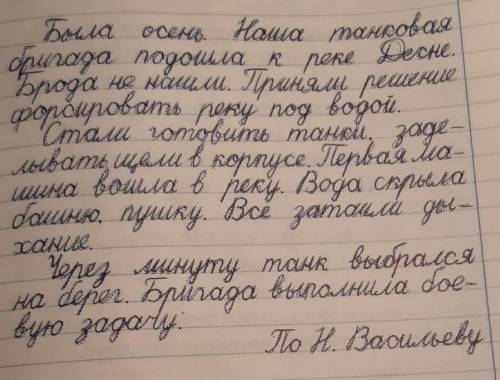 Была осень. Наша танковая
бригада подошла к реке Десне.
Брода не нашли. Приняли решение
форсировать реку под водой.
Стали готовить танки, заде-
лывать щели в корпусе. Первая ма-
шина вошла в реку. Вода скрыла
башню, пушку. Все затаили ды-
хание.
Через минуту танк выбрался
на берег. Бригада выполнила бое-
вую задачу.
По Н. Васильеву